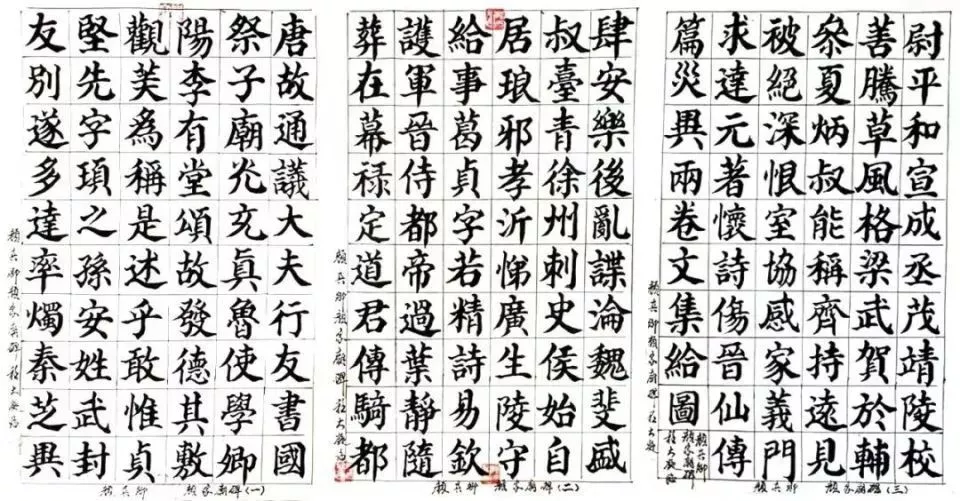 唐故通議大夫行友書國
祭子廟光充真魯使學卿
陽李有堂頌故發德其敷
觀芙為稱是述乎敢惟貞
堅先字頊之孫安姓武封
友別遂多達率燭秦芝興
顏真卿 顏家廟碑(一)
肆安樂後亂諜淪魏斐盛
叔臺青徐州刺史侯始自
居琅邪孝沂悌廣生陵守
給事葛貞字若精詩易欽
護軍晉侍都帝過葉靜隨
葬在幕祿定道君傳騎都
顏真卿 顏家廟碑(二)
尉平和宣成丞茂靖陵校
善騰草風格梁武賀於輔
叅夏炳叔能稱齊持遠見
被絕深恨室協感家義門
求達元著懷詩傷晉仙傳
篇災異兩卷文集給圖
顏真卿 顏家廟碑(三)